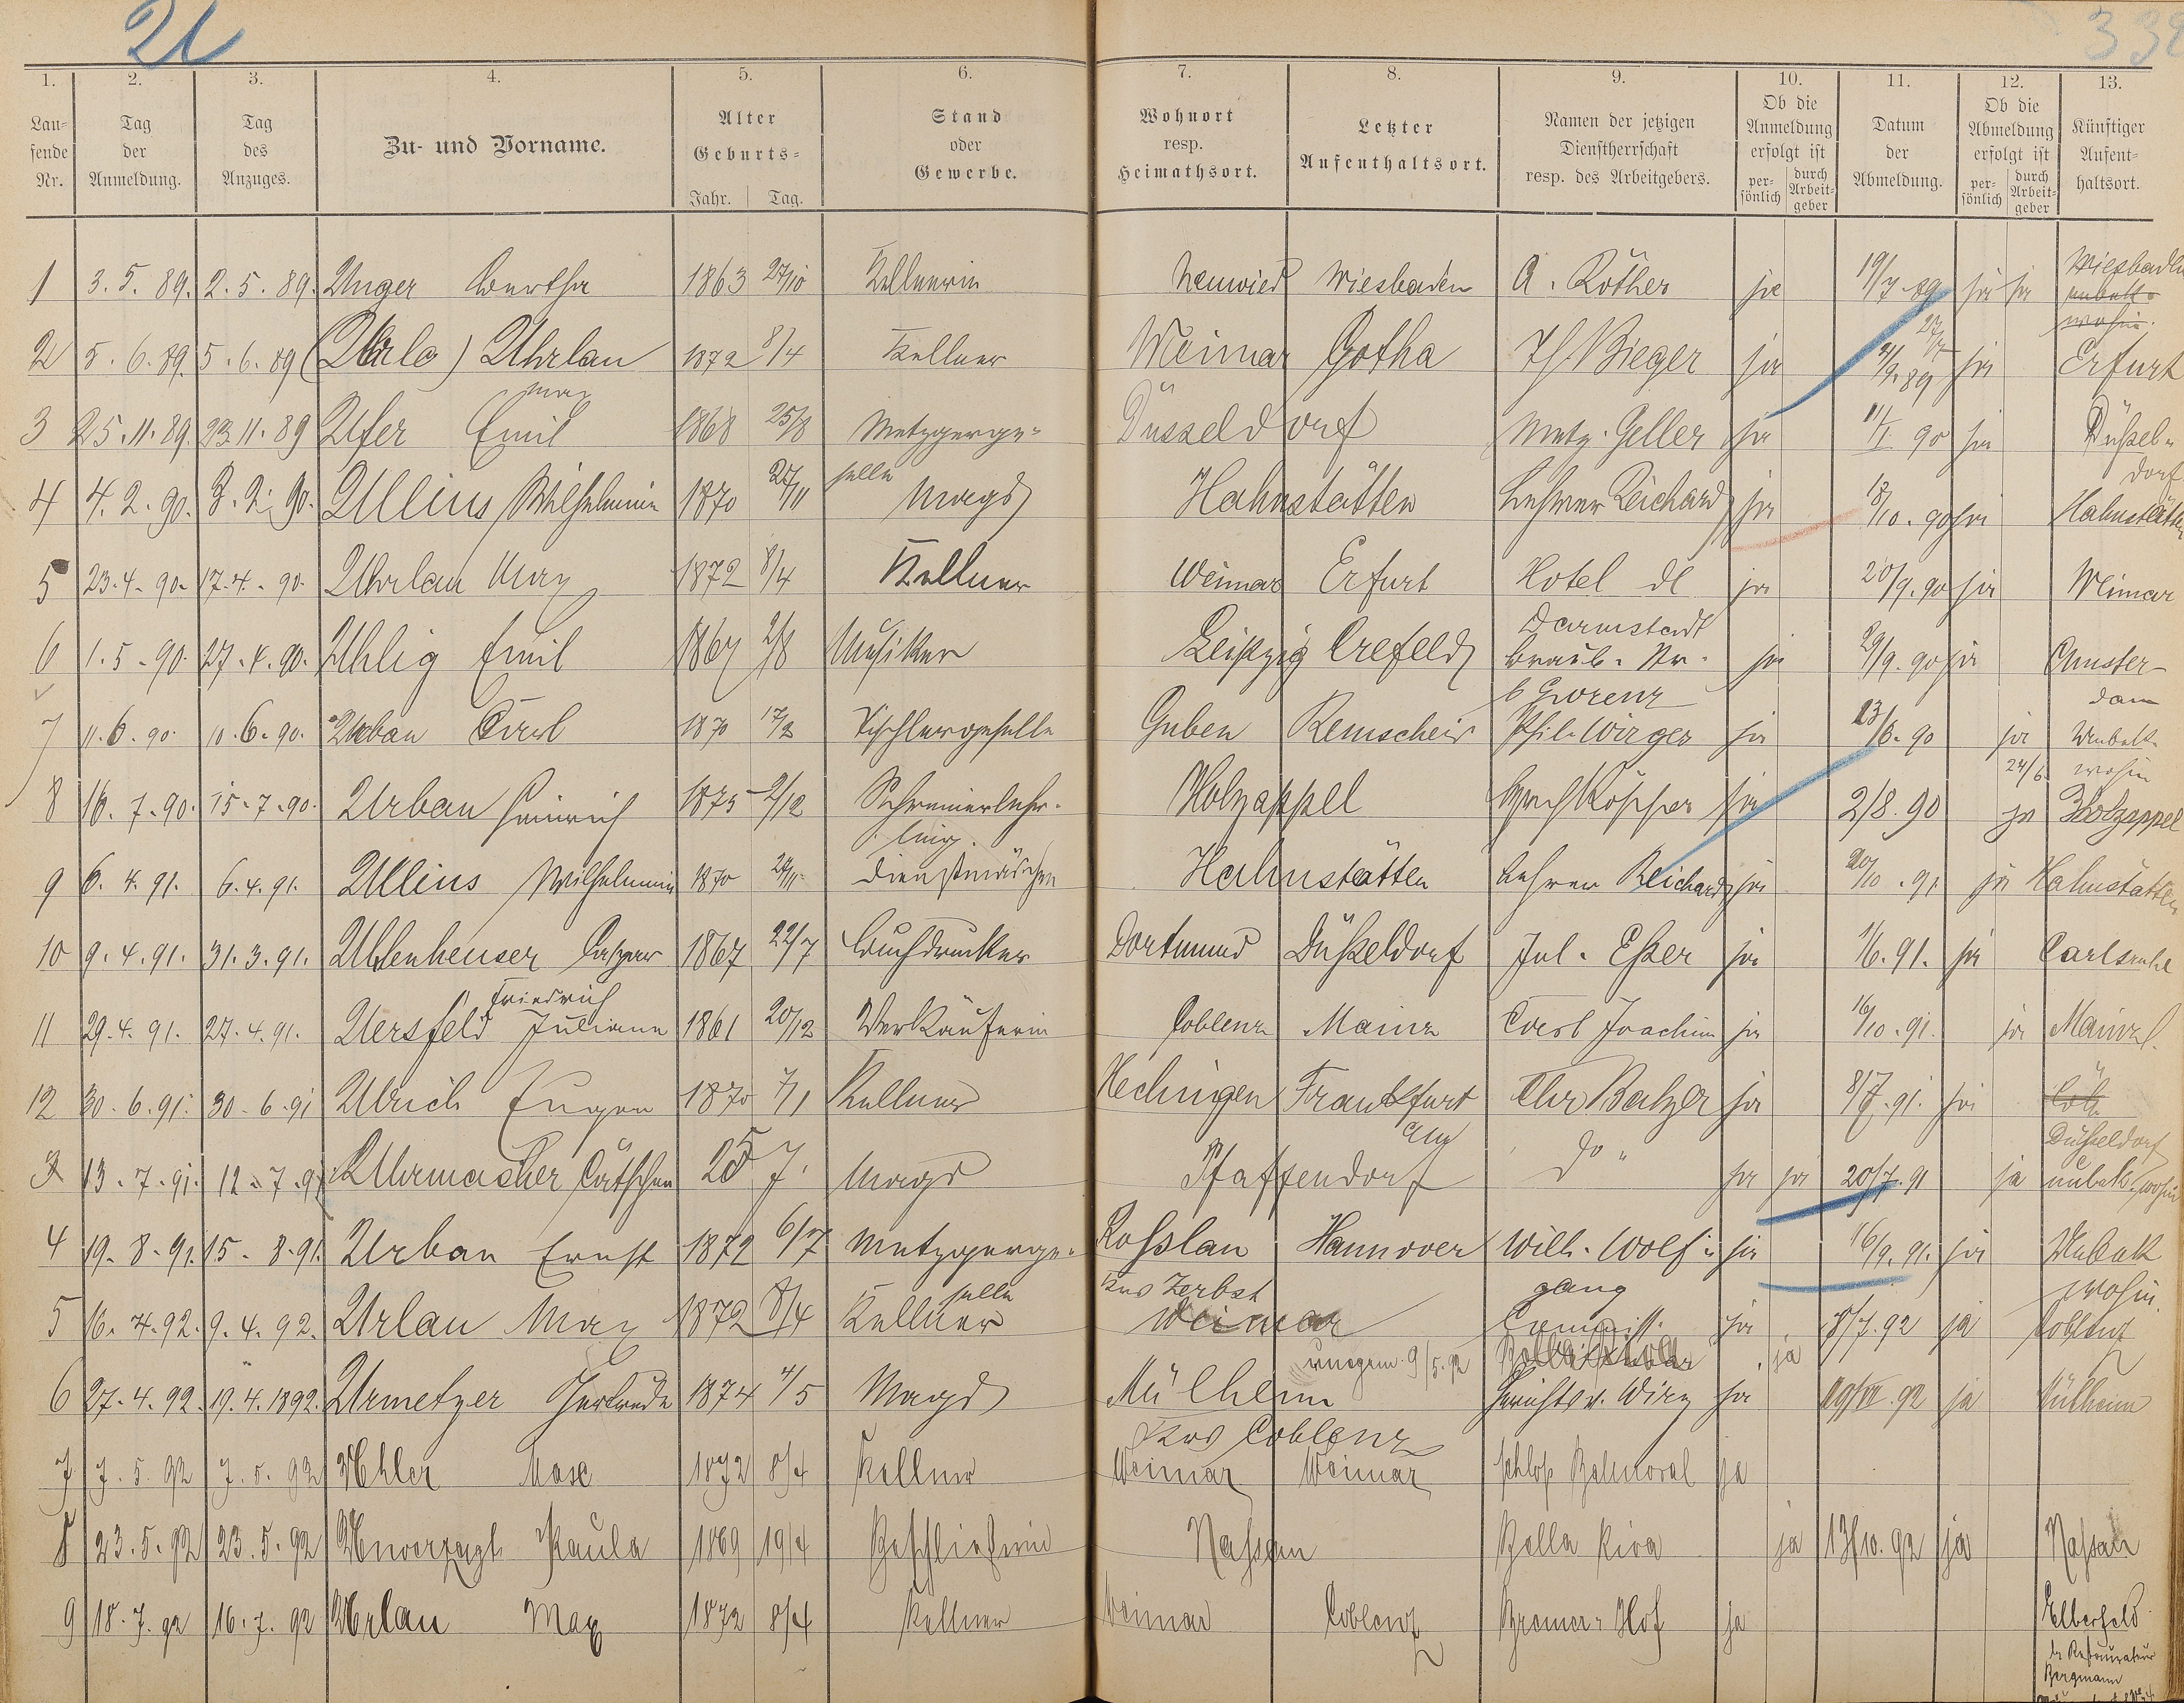 21 338
1. 2. 3. 4. 5. 6. 7. 8. 9. 10. 11. 12. 13.
Lau- Tag Tag Zu- und Vorname. Alter Stand Wohnort Letzter Namen der jetzigen Ob die Datum Ob die Künftiger
fende der des Geburts- oder resp. Aufenthaltsort. Dienstherrschaft Anmeldung der Abmeldung Aufent-
Nr. Anmeldung. Anzuges. Jahr. Tag. Gewerbe. Heimathsort. resp. des Arbeitgebers. erfolgt ist Abmeldung. erfolgt ist haltsort.
per- durch per- durch
sönlich Arbeit- sönlich Arbeit-
geber geber
1 3.5.89. 2.5.89. Unger Bertha 1863 27/10 Kellnerin Neuwied Wiesbaden A. Röther ja 19/7.89 ja ja Wiesbaden
unbek.
wohin.
2 5.6.89. 5.6.89 (Urla) Uhrlau 1872 8/4 Kellner Weimar Gotha Th Bieger ja 4/9.89 ja Erfurt
Max 27/7
3 25.11.89. 23.11.89 Ufer Emil 1868 25/8 Metzgerge- Düsseldorf Metz. Geller ja 11/I 90 ja Düßel-
selle dorf
4 4.2.90. 3.2.90. Ullius Wilhelmine 1870 27/11 Magd Hahnstätten Lehrer Reichard ja 18/10.90 ja Hahnstätten
5 23.4.90. 17.4.90. Uhrlau Max 1872 8/4 Kellner Weimar Erfurt Hotel de ja 20/9.90 ja Weimar
Darmstadt
6 1.5.90. 27.4.90. Uhlig Emil 1867 2/8 Musiker Leipzig Crefeld Braub. Str. ja 29/9.90 ja Amster-
b Gorenz dam
7 11.6.90. 10.6.90. Urban Carl 1870 17/2 Tischlergeselle Guben Remscheid Phil. Wirges ja 23/6.90 ja Unbek.
24/6 wohin
8 16.7.90. 15.7.90. Urban Heinrich 1875 2/12 Schreinerlehr- Holzappel ja 2/8.90 ja Holzappel
ling.
9 6.4.91. 6.4.91. Ullius Wilhelmine 1870 27/11 Dienstmädchen Hahnstätten Lehrer Reichard ja 20/10.91 ja Hahnstätten
10 9.4.91. 31.3.91. Uhlenheuser Caspar 1867 22/7 Buchdrucker Dortmund Düßeldorf Jul. Eßer ja 1/6.91. ja Carlsruhe
Friedrich
11 29.4.91. 27.4.91. Uersfeld Juliane 1861 20/12 Verkäuferin Coblenz Mainz Carl Joachim ja 16/10.91. ja Mainz.
12 30.6.91. 30.6.91 Ulrich Eugen 1870 7/1 Kellner Hechingen Frankfurt Chr Balzer ja 8/7.91. ja Cöln
a/M Düßeldorf
3 13.7.91. 12.7.91 Uhrmacher Cätchen 25 J. Magd Pfaffendorf do " ja ja 20/7.91 ja unbek. wohin
4 19.8.91. 15.8.91. Urban Ernst 1872 6/7 Metzgerge- Roßlau Hannover Wilh. Wolf- ja 16/9.91. ja Unbek
selle Krs Zerbst gang wohin.
5 16.4.92. 9.4.92. Urlau Max 1872 8/4 Kellner Weimar ja 8/7.92 ja Coblenz
umgem. 9/5.92 ja
6 27.4.92. 19.4.1892. Urmetzer Gertrude 1874 4/5 Magd Mülheim Gerichtsv. Wirz ja 19/VII.92 ja Mülheim
Krs Coblenz
7 7.5.92 7.5.92 Uhler Max 1872 8/4 Kellner Weimar Weimar Schloß Balmoral ja
8 23.5.92 23.5.92 Unverzagt Paula 1869 19/4 Beschließerin Nassau Bella Riva ja 13/10.92 ja Nassau
9 18.7.92 16.7.92 Urlau Max 1872 8/4 Kellner Weimar Coblenz Bremer-Hof ja Elberfeld
b. Restaurateur
Bergmann